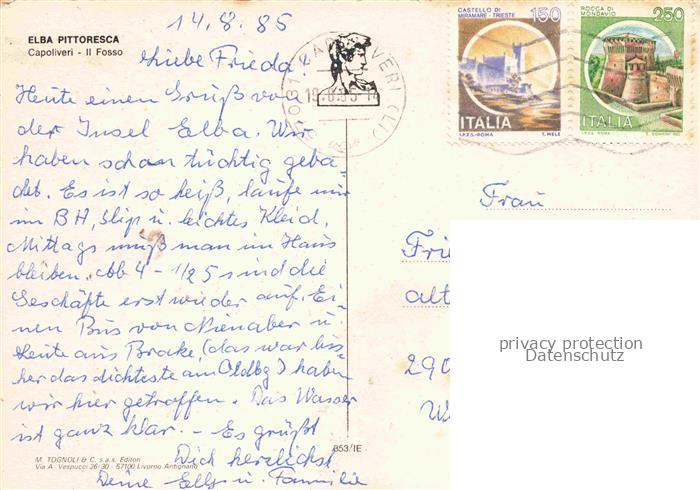 14.8.85
ELBA PITTORESCA
Capoliveri - Il Fosso
Liebe Frieda!
Heute einen Gruß von
der Insel Elba. Wir
haben schon tüchtig geba-
det. Es ist so heiß, laufe nur
im BH, Slip u. leichtes Kleid.
Mittags muß man im Haus
bleiben. Ab 4 - 1/2 5 sind die
Geschäfte erst wieder auf. Ei-
nen Bus von Nienaber u.
Leute aus Brake, (das war bis-
her das dichteste am Oldbg) haben
wir hier getroffen. Das Wasser
ist ganz klar. - Es grüßt
Dich herzlichst
Deine Elly u. Familie
M. TOGNOLI & C. s.a.s. Editori
Via A. Vespucci 26-30 - 57100 Livorno Antignano
853/IE
CASTELLO DI
MIRAMARE - TRIESTE
150
ITALIA
I.P.Z.S.-ROMA T. MELE
ROCCA DI
MONDAVIO
250
ITALIA
I.P.Z.S. ROMA
Frau
Frie
alt
290
privacy protection
Datenschutz